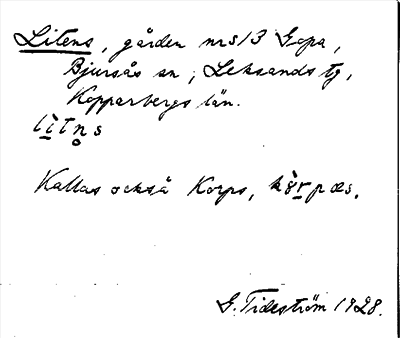 Litens, gården nr 5/3 Gopa,
Bjursås sn, Leksands tg,
Kopparbergs län.
lìtn̥s
Kallas också Korps,
G. Tideström 1928.